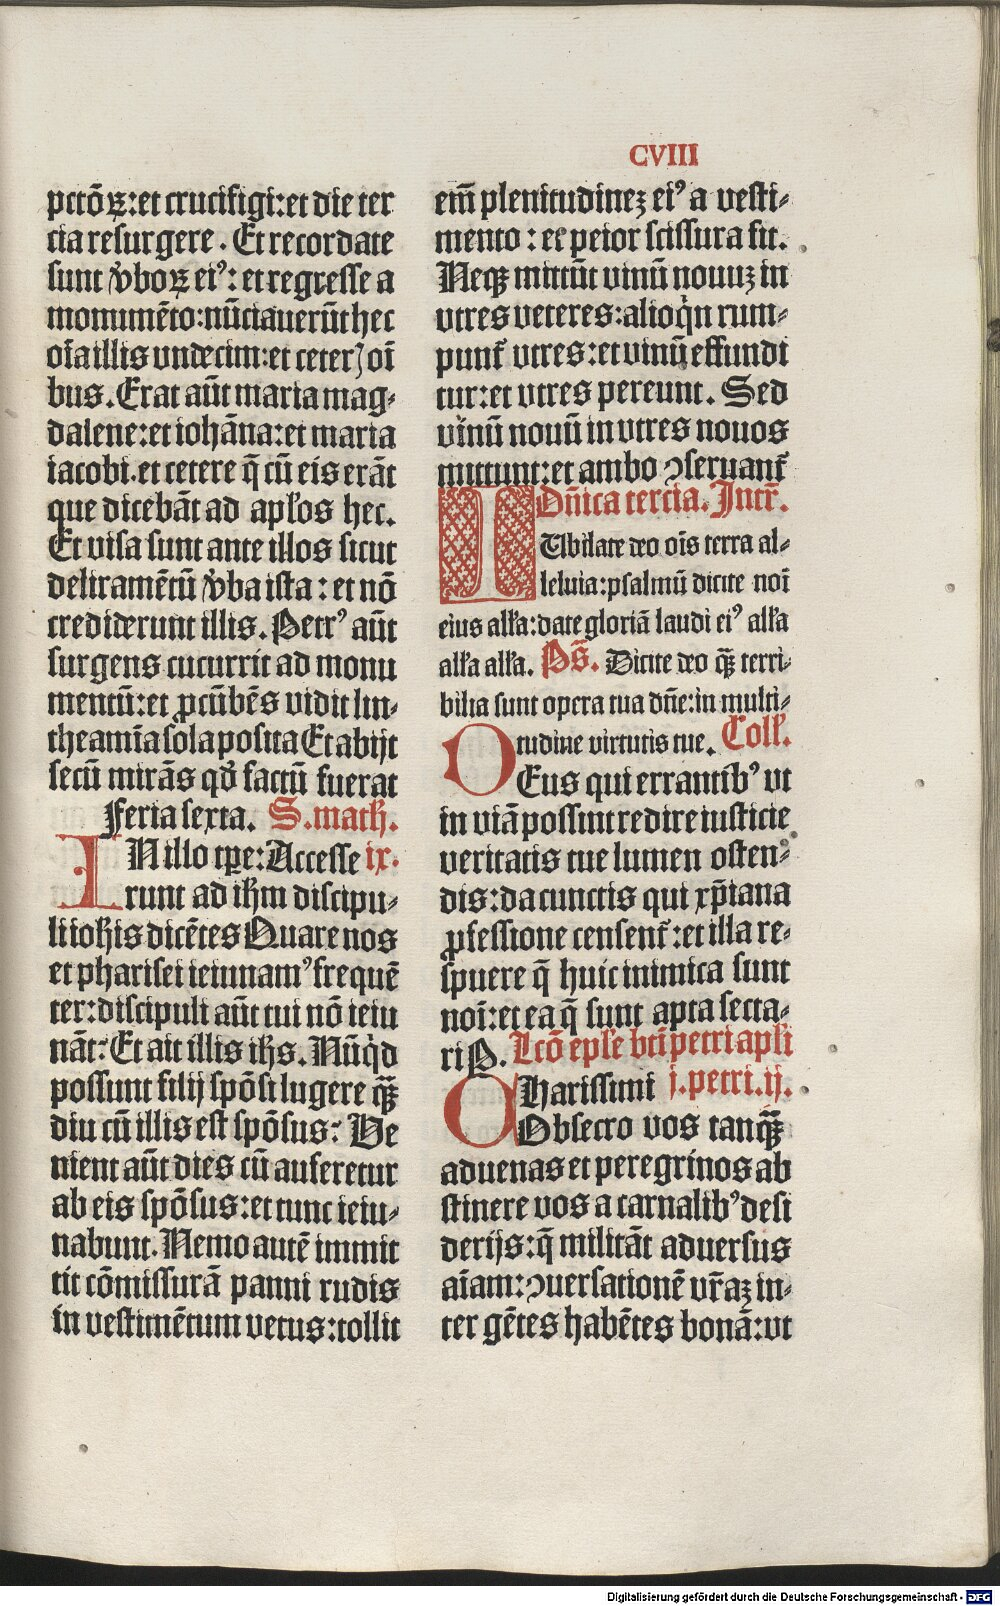 CVIII
pctōꝝ:et crucifigi:et die ter
cia resurgere. Et recordate
sunt v̾boꝝ eiꝰ: et regresse a
monumēto:nūciauerūt hec
oīa illis vndecim:et ceterꝭ oī
bus. Erat aūt maria mag⸗
dalene:et iohāna:et maria
iacobi.et cetere q̄ cū eis erāt
que dicebāt ad apl'os hec.
Et visa sunt ante illos sicut
deliramētū v̾ba ista: et nō
crediderunt illis. Petrꝰ aūt
surgens cucurrit ad monu
mentū:et ꝓcūbēs vidit lin⸗
theamīa sola posita Et abijt
secū mirās qđ factū fuerat
Feria sexta. S. math.
IN illo tꝑe: Accesse ix.
runt ad ihm̄ discipu⸗
li iohis dicētes Quare nos
et pharisei ieiunamꝰ frequē
ter:discipuli aūt tui nō ieiu
nāt: Et ait illis ihs̄. Nūqͥd
possunt filij spōsi lugere qͣꝫ
diu cū illis est spōsus: Ve
nient aūt dies cū auferetur
ab eis spōsus:et tunc ieiu⸗
nabunt. Nemo autē immit
tit cōmissurā panni rudis
in vestimētum vetus:tollit
em̄ plenitudineꝫ eiꝰ a vesti⸗
mento: et peior scissura fit.
Neqꝫ mittūt vinū nouuꝫ in
vtres veteres:alioqͥn rum⸗
punt᷑ vtres:et vinū effundi
tur:et vtres pereunt. Sed
vinū nouū in vtres nouos
mittunt:et ambo ꝯseruant᷑
Dn̄ica tercia. Intr̄.
IUbilate deo oīs terra al⸗
leluia:psalmū dicite noī
eius all'a:date gloriā laudi eiꝰ all'a
all'a all'a. Ps̄. Dicite deo qͣꝫ terri⸗
bilia sunt opera tua dn̄e:in multi⸗
tudine virtutis tue. Coll'.
DEus qui errantibꝰ vt
in viā possint redire iusticie
veritatis tue lumen osten⸗
dis:da cunctis qui xp̄iana
ꝓfessione censent᷑:et illa re⸗
spuere q̄ huic inimica sunt
noī:et ea q̄ sunt apta secta⸗
ri P. Lcō epl'e bt̄i petri apl'i
CHarissimi j. petri. ij.
Obsecro vos tanqͣꝫ
aduenas et peregrinos ab
stinere vos a carnalibꝰ desi
derijs:q̄ militāt aduersus
aīam:ꝯuersationē vr̄aꝫ in⸗
ter gētes habētes bonā:vt
Digitalisierung gefördert durch die Deutsche Forschungsgemeinschaft - DFG